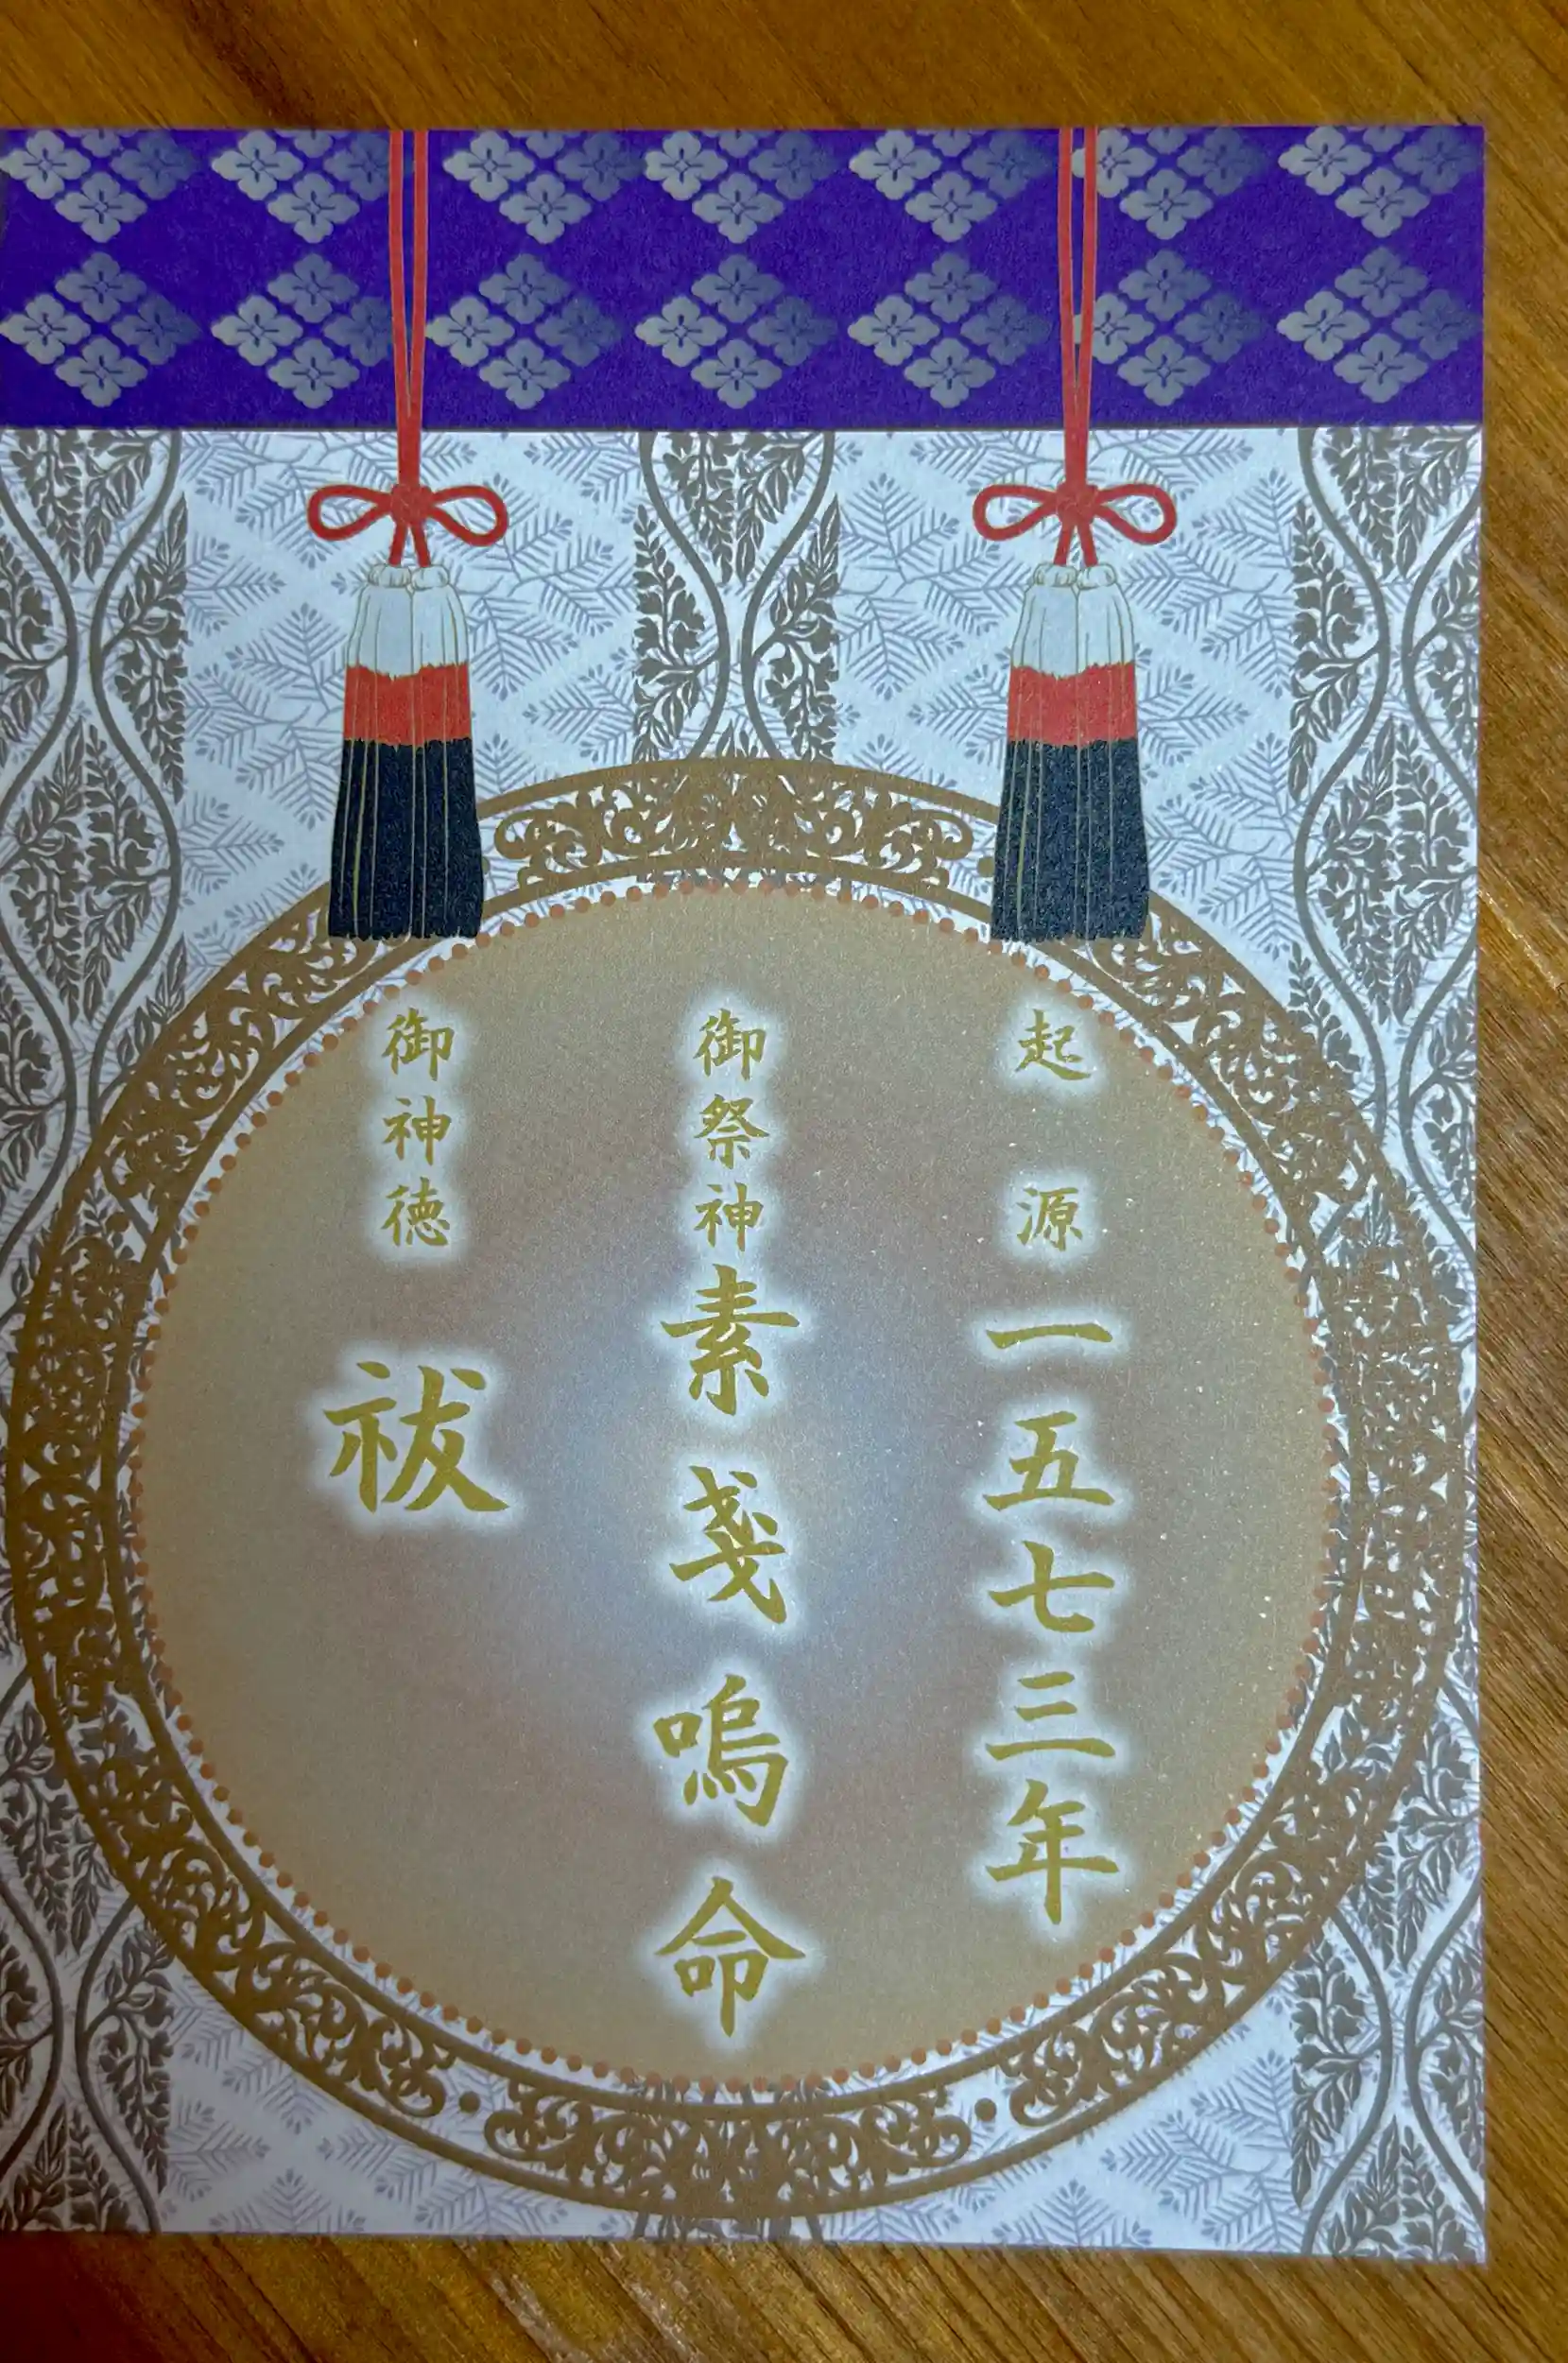 起源一五七三年
御祭神素戔嗚命
御神徳祓